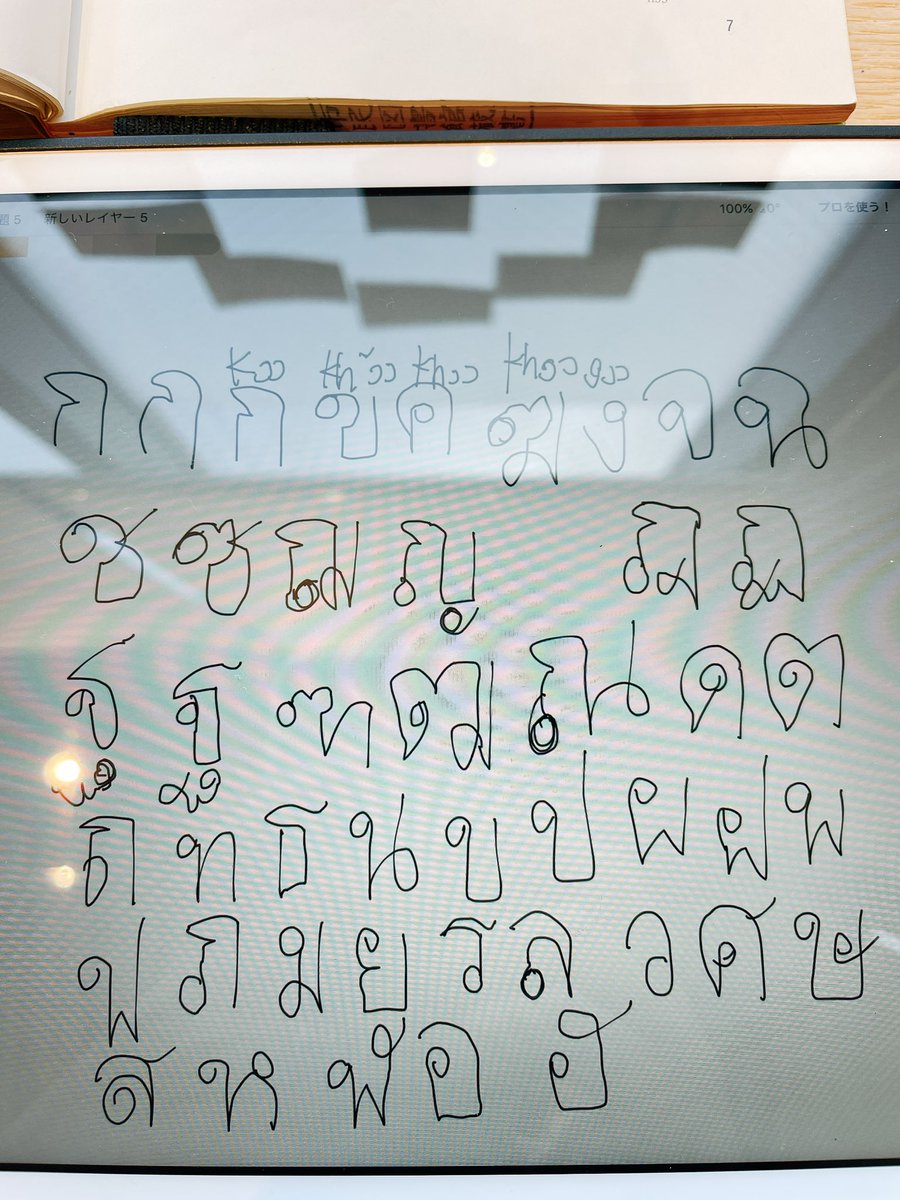 7
題 5 新しいレイヤー 5 100% プロを使う!
kɔɔ khɔ̌ɔ khɔɔ khɔɔ ŋɔɔ
ก ก ก ข ค ฆ ง จ ฉ
ช ซ ฌ ญ ฎ ฏ
ฐ ฐ ฑ ฒ ณ ด ต
ถ ท ธ น บ ป ผ ฝ พ
ฟ ภ ม ย ร ล ว ศ ษ
ส ห ฬ อ ฮ